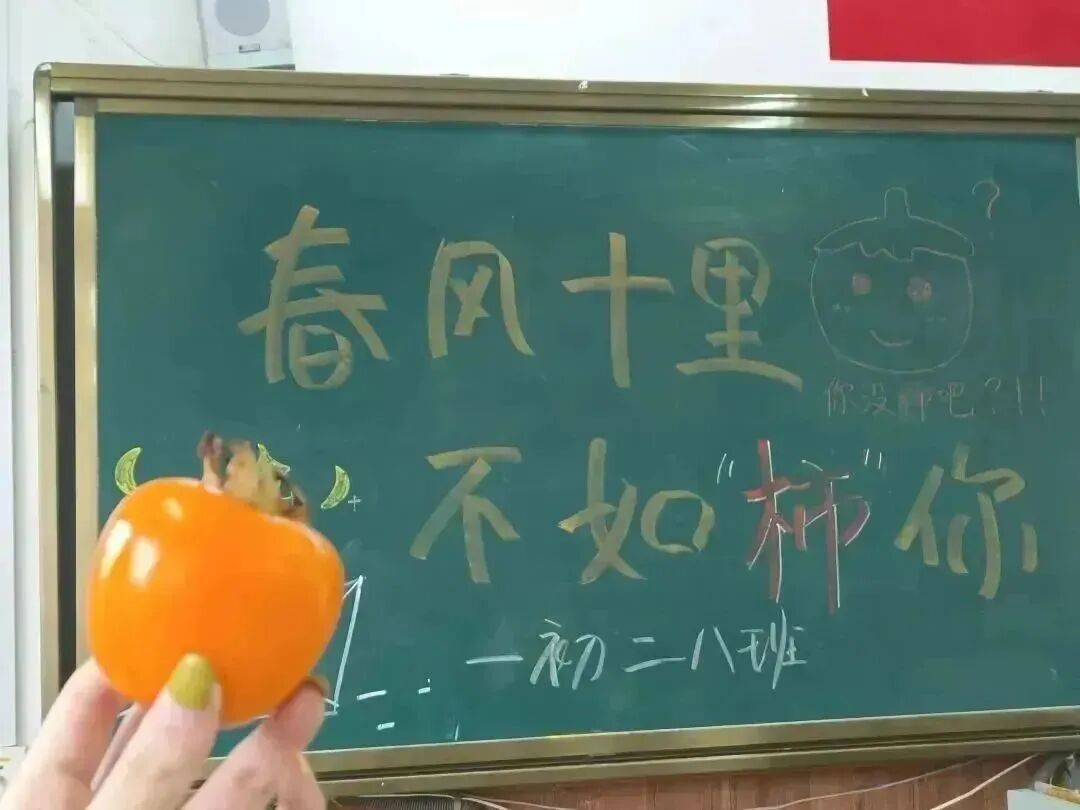 春风十里
?
你没柿吧?!!
不如“柿”你
—初二八班